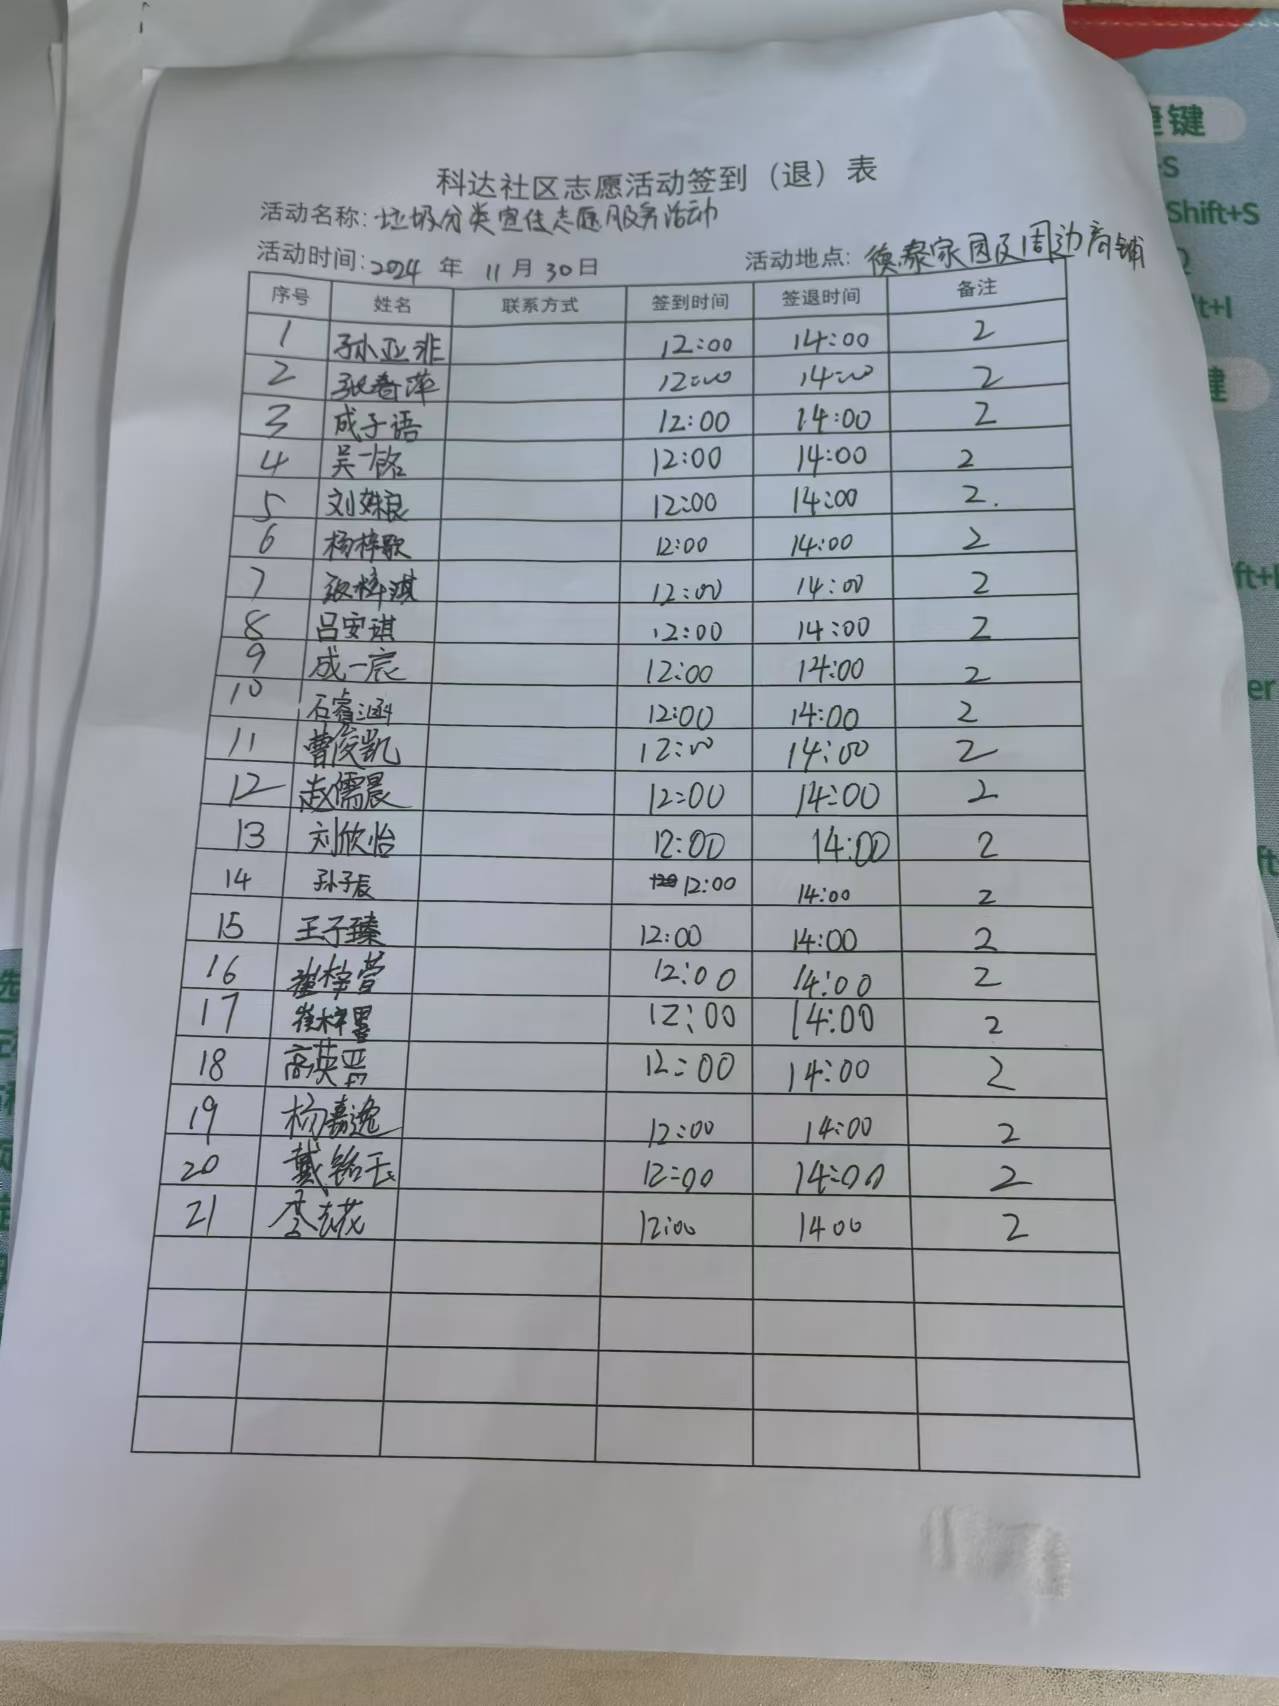 科达社区志愿活动签到（退）表
活动名称: 垃圾分类宣传志愿服务活动
活动时间: 2024 年 11月30日 活动地点: 德泰家园及周边商铺
序号 姓名 联系方式 签到时间 签退时间 备注
1 孙亚非 12:00 14:00 2
2 张春萍 12:00 14:00 2
3 成子语 12:00 14:00 2
4 吴一铭 12:00 14:00 2
5 刘姝良 12:00 14:00 2.
6 杨梓歌 12:00 14:00 2
7 张梓淇 12:00 14:00 2
8 吕安琪 12:00 14:00 2
9 成一宸 12:00 14:00 2
10 石睿涵 12:00 14:00 2
11 曹俊凯 12:00 14:00 2
12 赵儒晨 12:00 14:00 2
13 刘欣怡 12:00 14:00 2
14 孙子辰 12:00 14:00 2
15 王子臻 12:00 14:00 2
16 崔梓萱 12:00 14:00 2
17 崔梓墨 12:00 14:00 2
18 高英晋 12:00 14:00 2
19 杨嘉逸 12:00 14:00 2
20 戴铭 12:00 14:00 2
21 李 12:00 1400 2
捷键
Shift+S